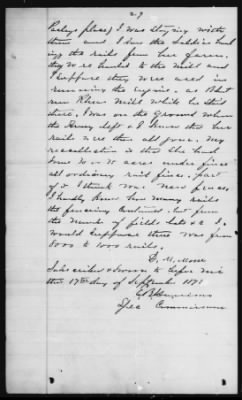 29
place) I was staying with
them and I saw the Soldiers haul
ing the rails from her farm,
they were hauled to the Mill and
I suppose they were used in
running the engine. as that
run Rheas Mill while he staid
there. I was on the ground when
the Army left & I know that her
rails were then all gone. My
recollection is that she had
some 30 or acres under fence
all ordinary rail fence. part
of it I think was new fence,
I hardly know how many rails
the fencing contained, but from
the number of field lots &c I
would suppose there was from
8000 to 1000 rails.
E. M. Moore
Subscribed & Sworn to before me
this 17th day of September 1871
Spec Commissioner